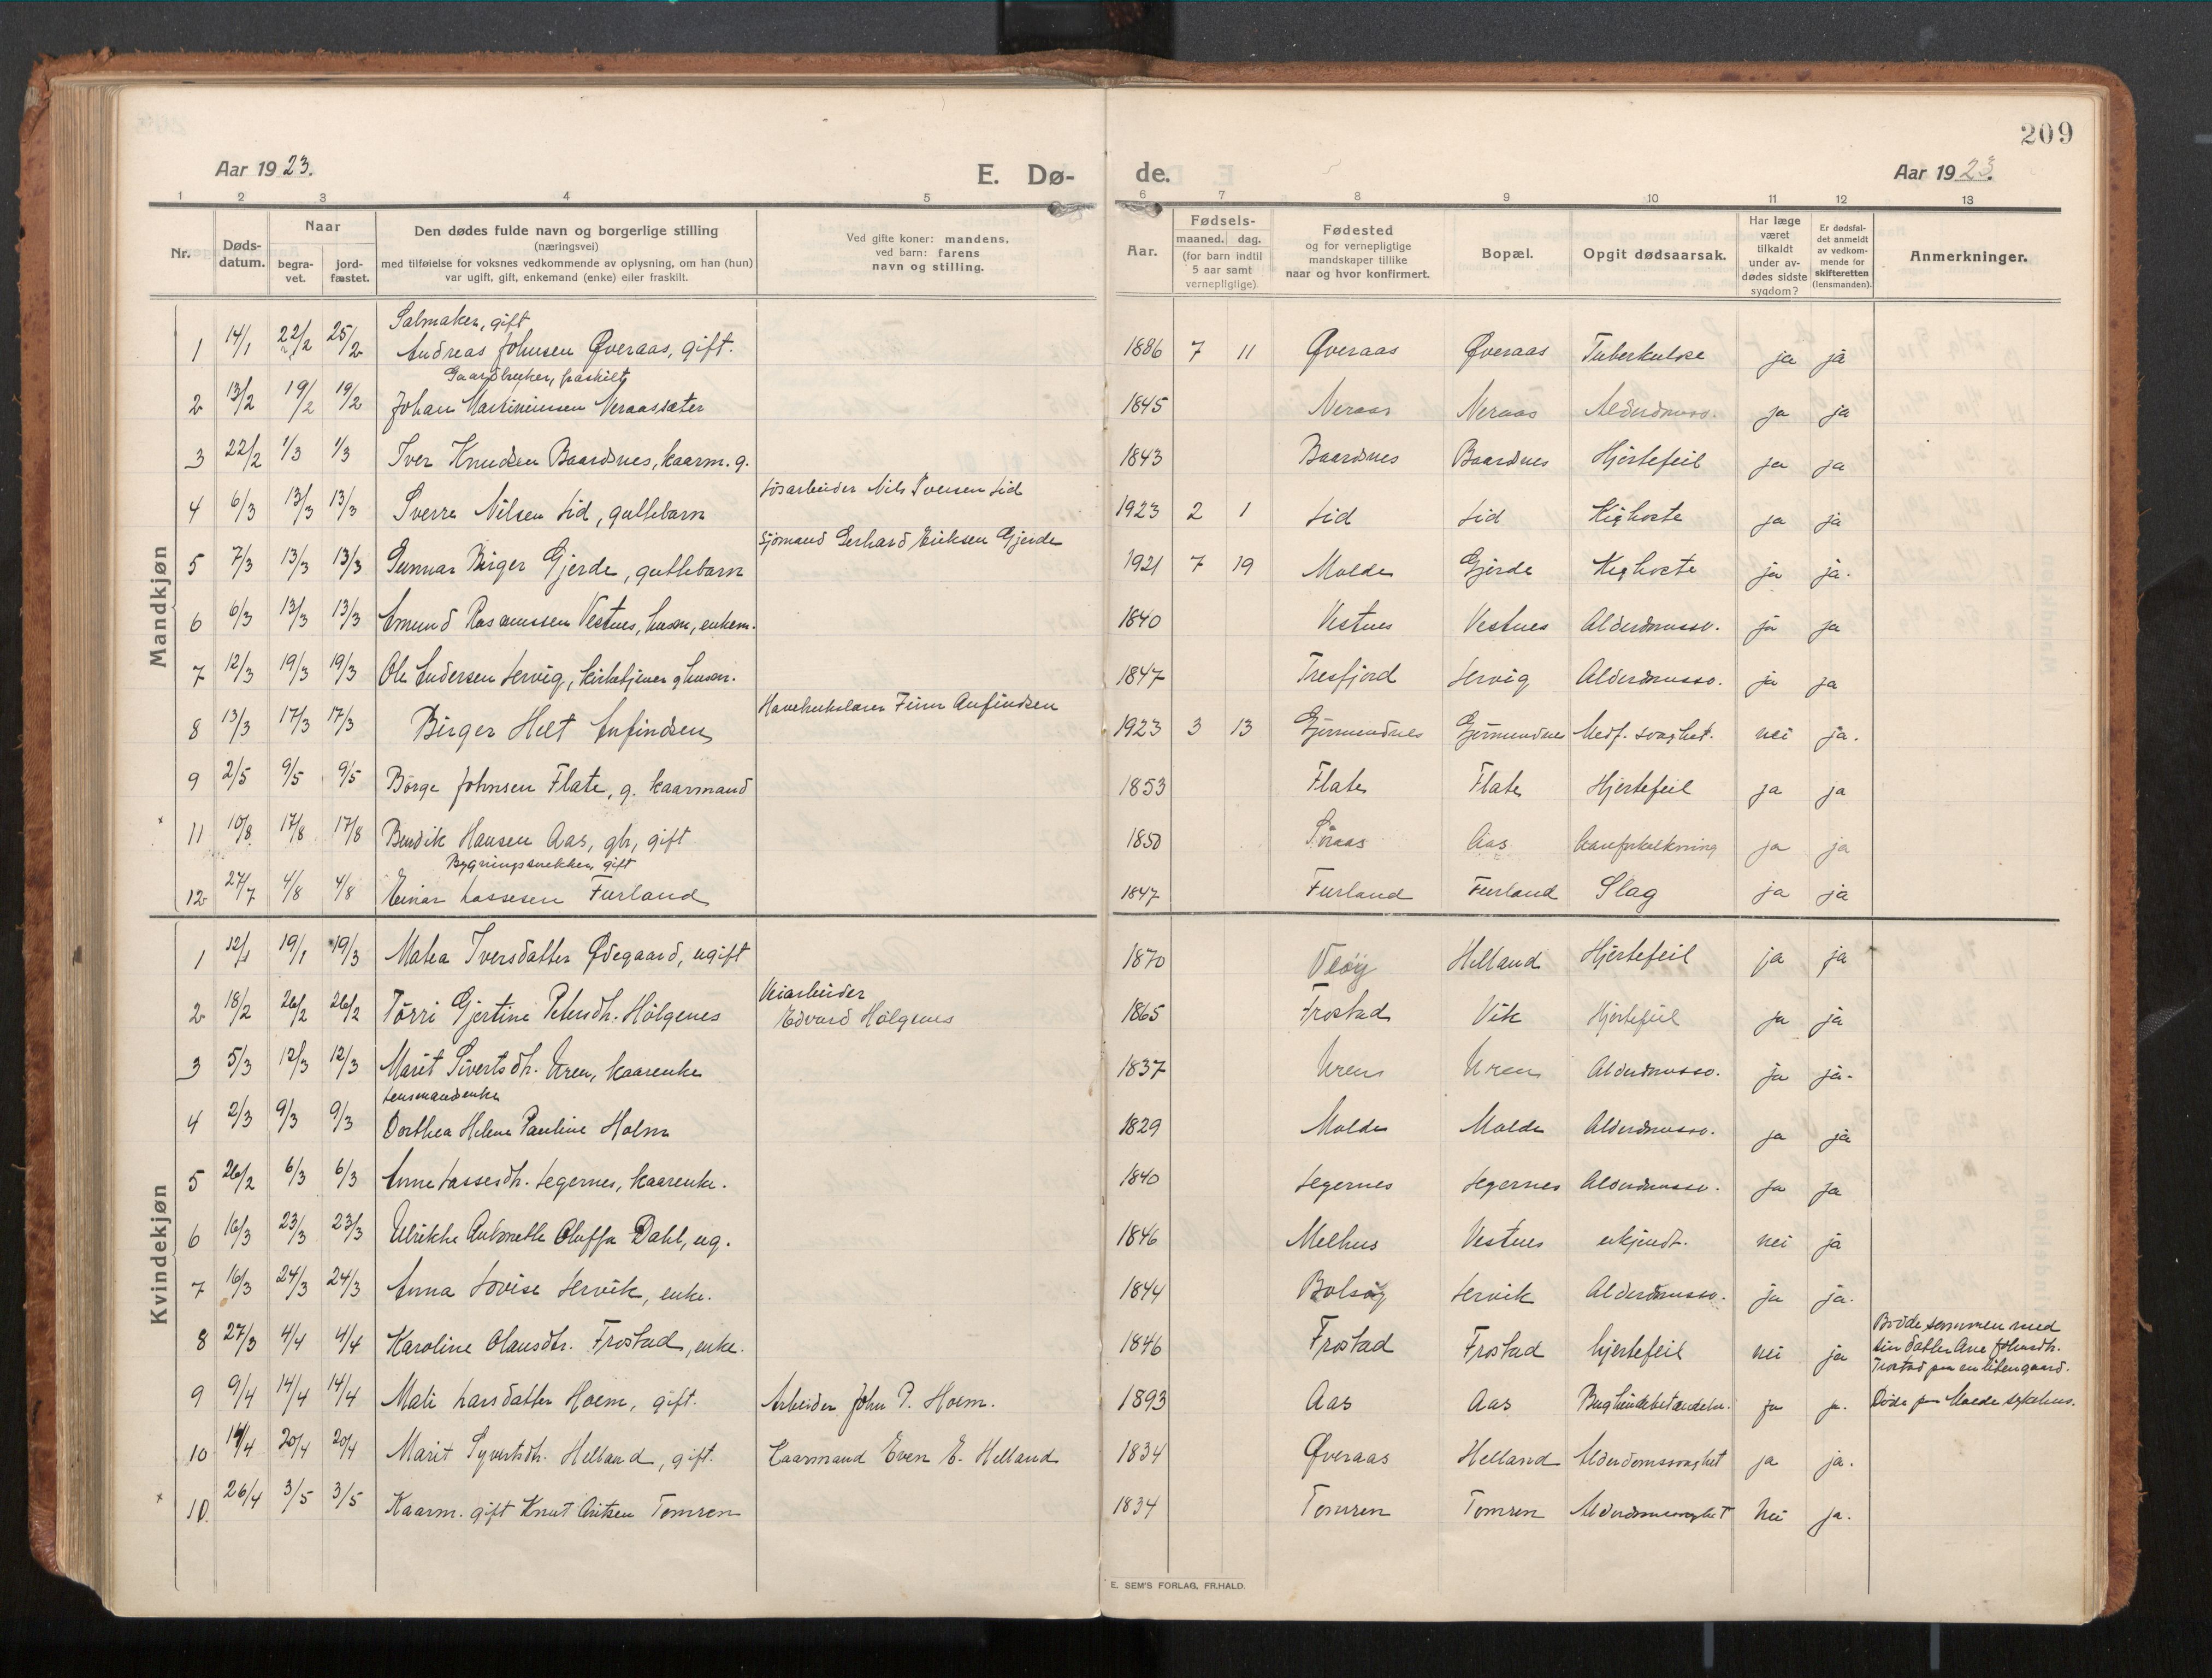 209
Aar 1923. E. Dø- de. Aar 1923.
1 2 3 4 5 6 7 8 9 10 11 12 13
Nr. Døds-datum. Naar begra-vet. jord-fæstet. Den dødes fulde navn og borgerlige stilling (næringsvei) med tilføielse for voksnes vedkommende av oplysning, om han (hun) var ugift, gift, enkemand (enke) eller fraskilt. Ved gifte koner: mandens, ved barn: farens navn og stilling. Aar. Fødsels- maaned. dag. (for barn indtil 5 aar samt vernepligtige) Fødested og for vernepligtige mandskaper tillike naar og hvor konfirmert. Bopæl. Opgit dødsaarsak. Har læge været tilkaldt under av-dødes sidste sygdom? Er dødsfal-det anmeldt av vedkom-mende for skifteretten (lensmanden). Anmerkninger.
Mandkjøn
Salmaker, gift
1 14/1 22/2 25/2 Andreas Johnsen Øveraas, gift. 1886 7 11 Øveraas Øveraas Tuberkulose ja ja
Gaardbruker, fraskilt
2 13/2 19/2 19/2 Johan Martiniussen Neraassæter 1845 Neraas Neraas Alderdomssv. ja ja
3 22/2 1/3 1/3 Iver Knudsen Baardsnes, kaarm. g. 1843 Baardsnes Baardsnes Hjertefeil ja ja
4 6/3 13/3 13/3 Sverre Nilsen Lid, guttebarn Løsarbeider Nils Iversen Lid 1923 2 1 Lid Lid Kighoste ja ja
5 7/3 13/3 13/3 Gunnar Birger Gjerde, guttebarn Sjømand Gerhard Eriksen Gjerde 1921 7 19 Molde Gjerde Kighoste ja ja.
6 6/3 13/3 13/3 Emund Rasmussen Vestnes, husm, enkem. 1840 Vestnes Vestnes Alderdmssv. ja ja
7 12/3 19/3 19/3 Ole Endersen Lervig, kirketjener g husm. 1847 Tresfjord Lervig Alderdmssv. ja ja
8 13/3 17/3 17/3 Birger Helt Anfindsen Havebrukslærer Finn Anfindsen 1923 3 13 Gjermundnes Gjermundnes Medf. svaghet. nei ja.
9 2/5 9/5 9/5 Børge Johnsen Flate, g. kaarmand 1853 Flate Flate Hjertefeil ja ja
11 10/8 17/8 17/8 Bendik Hansen Aas, gbr, gift 1850 Aas Aareforkalkning ja ja
Bygningssnekker, gift
12 27/7 4/8 4/8 Einar Lassesen Furland 1847 Furland Furland Slag ja ja
Kvindekjøn
1 12/1 19/1 19/3 Matea Iversdatter Ødegaard, ugift 1870 Veøy Helland Hjertefeil ja ja
Veiarbeider
2 18/2 26/2 26/2 Tørri Gjertine Petersdtr. Hølgenes Edvard Hølgenes 1865 Frostad Vik Hjertefeil ja ja
3 5/3 12/3 12/3 Marit Sivertsdtr. Uren, kaarenke 1837 Uren Uren Alderdmssv. ja ja.
Lensmandsenke
4 2/3 9/3 9/3 Dorthea Helene Pauline Holm 1829 Molde Molde Alderdmssv. ja ja
5 26/2 6/3 6/3 Anne Lassesdtr. Legernes, kaarenke. 1840 Legernes Legernes Alderdmssv. ja ja
6 16/3 23/3 23/3 Ulrikke Antonette Oluffa Dahl, ug. 1846 Melhus Vestnes ukjendt. nei ja
7 16/3 24/3 24/3 Anna Lovise Lervik, enke. 1844 Bolsøy Lervik Alderdmssv. ja ja.
8 27/3 4/4 4/4 Karoline Olausdtr. Frostad, enke. 1846 Frostad Frostad hjertefeil nei ja Bodde sammen med
sin datter Ane Johnsdtr.
Frostad paa en liten gaard.
9 9/4 14/4 14/4 Mali Larsdatter Hoem, gift. Arbeider John P. Hoem. 1893 Aas Aas Bughindebetændelse. ja ja. Døde paa Molde sykehus.
10 14/4 20/4 20/4 Marit Syvertsdtr. Helland, gift. Kaarmand Even E. Helland 1834 Øveraas Helland Alderdomssvaghet ja ja.
10 26/4 3/5 3/5 Kaarm. gift Knut Tomren 1834 Tomren Tomren Alderdomssvaghet Nei ja.
E. SEM'S FORLAG, FR.HALD.